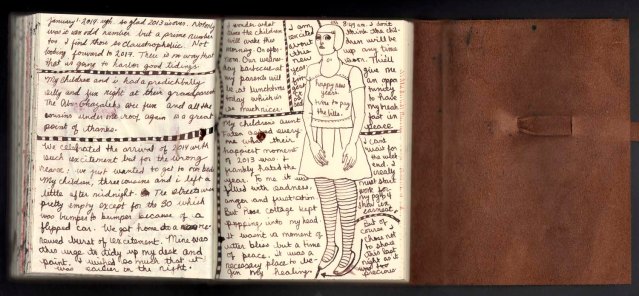 January 1, 2014 ugh. so glad 2013 is over. Not only
was it an odd number but a prime number
too. I find those so claustrophobic. Not
looking forward to 2017. There is no way that
that is going to harbor good tidings.
My children and i had a predictably
silly and fun night at their grandparents
The Abu Ghazalehs are fun and all the
cousins under one roof again is a great
point of thanks.
We celebrated the arrival of 2014 with
such excitement but for the wrong
reason: we just wanted to get to our beds
My children, three cousins and i left a
little after midnight. The streets were
pretty empty except for the 30 which
was bumper to bumper because of a
flipped car. We got home to a re-
newed burst of excitement. Mine was
this urge to tidy up my desk and
paint. I wished so much that it
was earlier in the night.
I wonder what
time the children
will wake this
morning. Or after-
noon. Our
barbecue at
my parents will
be at lunchtime
today which is
so much nicer.
My children's aunt
Faten asked every
one what their
happiest moment
of 2013 was. i
frankly hated the
year. To me it was
filled with sadness,
anger and frustration
but Rose cottage kept
popping into my head
it wasn't a moment of
utter bliss but a time
of peace. it was a
necessary place to be-
gin my healing
I am
excited
about
this
new
year
happy new
year.
time to pay
the bills.
8:49 am. I don't
think the chil-
dren will be
up any time
soon. This'll
give me
an oppor
tunity
to have
my break
fast in
peace
I can't
wait for
the week
end. I
really
must start
work for
my
show in
earnest.
But of
course i
chose not
to sleep
this
last
night as it
was too
precious